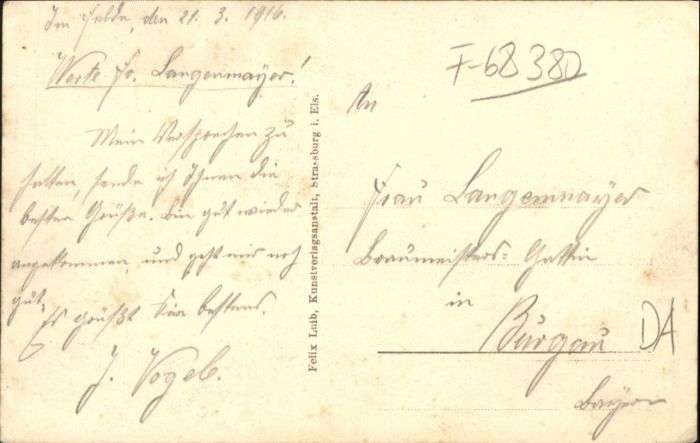 Im Felde, den 21. 3. 1916.
Werte Fr. Langenmayer!
Mein Versprechen zu
halten, sende ich Ihnen die
besten Grüße. Bin gut wieder
angekommen, und geht mir noch
gut.
Es grüßt Sie bestens.
J. Vogel.
Felix Luib, Kunstverlagsanstalt, Strassburg i. Els.
F-68380
An
Frau Langenmayer
Braumeisters-Gattin
in
Burgau
DA
Bayern